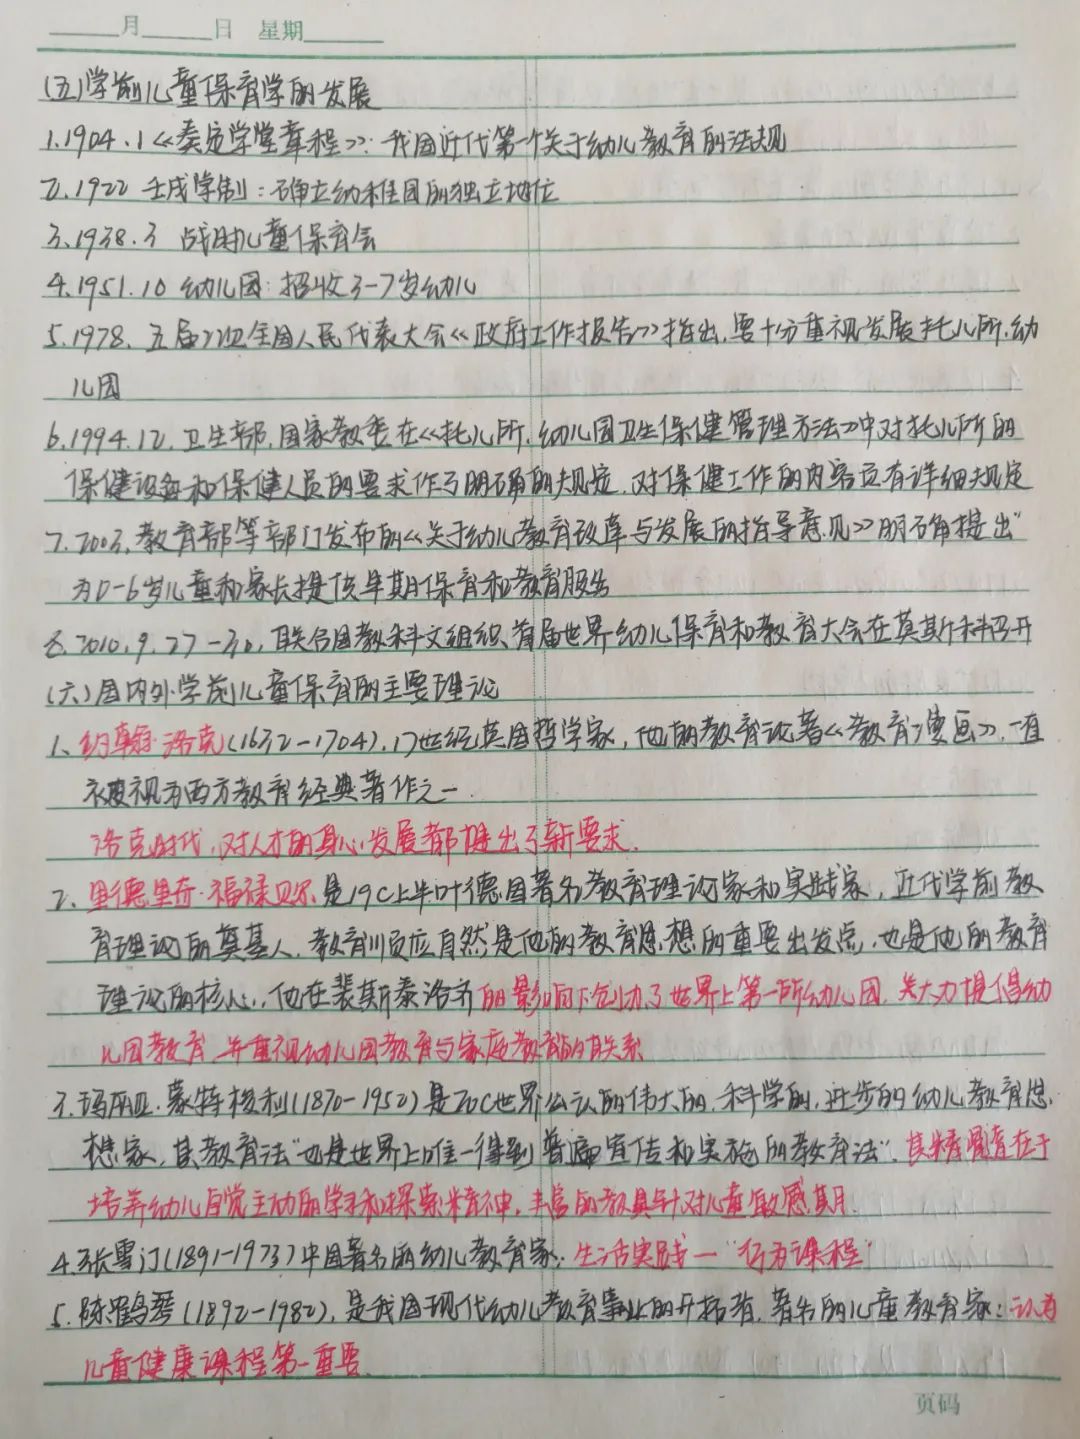 月 日 星期
(五)学前儿童保育学的发展
1.1904.1《奏定学堂章程》:我国近代第一个关于幼儿教育的法规
2.1922 壬戌学制:确立幼稚园的独立地位
3.1938.3 战时儿童保育会
4.1951.10 幼儿园:招收3-7岁幼儿
5.1978.五届次全国人民代表大会《政府工作报告》指出,要十分重视发展托儿所.幼
儿园
6.1994.12.卫生部,国家教委在《托儿所.幼儿园卫生保健管理方法》中对托儿所的
保健设备和保健人员的要求作了明确的规定.对保健工作的内容应有详细规定
7.2003,教育部等部门发布的《关于幼儿教育改革与发展的指导意见》明确提出“
为0-6岁儿童和家长提供早期保育和教育服务
8.2010.9.27-30,联合国教科文组织首届世界幼儿保育和教育大会在莫斯科召开
(六)国内外学前儿童保育的主要理论
1、约翰·洛克(1632-1704),17世纪英国哲学家,他的教育论著《教育漫画》,一直
被视为西方教育经典著作之一.
洛克时代,对人才的身心发展都提出了新要求.
2、里德里奇·福禄贝尔是19C上半叶德国著名教育理论家和实践家,近代学前教
育理论的奠基人,教育顺应自然是他的教育思想的重要出发点,也是他的教育
理论的核心,他在裴斯泰洛齐的影响下创办了世界上第一所幼儿园,大力提倡幼
儿园教育,并重视幼儿园教育与家庭教育的关系
3.玛丽亚.蒙特梭利(1870-1952)是20C世界公认的伟大的,科学的,进步的幼儿教育思
想家,其教育法“也是世界上唯一得到普遍宣传和实施的教育法”,其精髓在于
培养幼儿自觉主动的学习和探索精神,丰富的教具针对儿童敏感期.
4.张雪门(1891-1973)中国著名的幼儿教育家:生活实践—“行为课程”
5.陈鹤琴(1892-1982),是我国现代幼儿教育事业的开拓者,著名的儿童教育家:认为
儿童健康课程第一重要.
页码